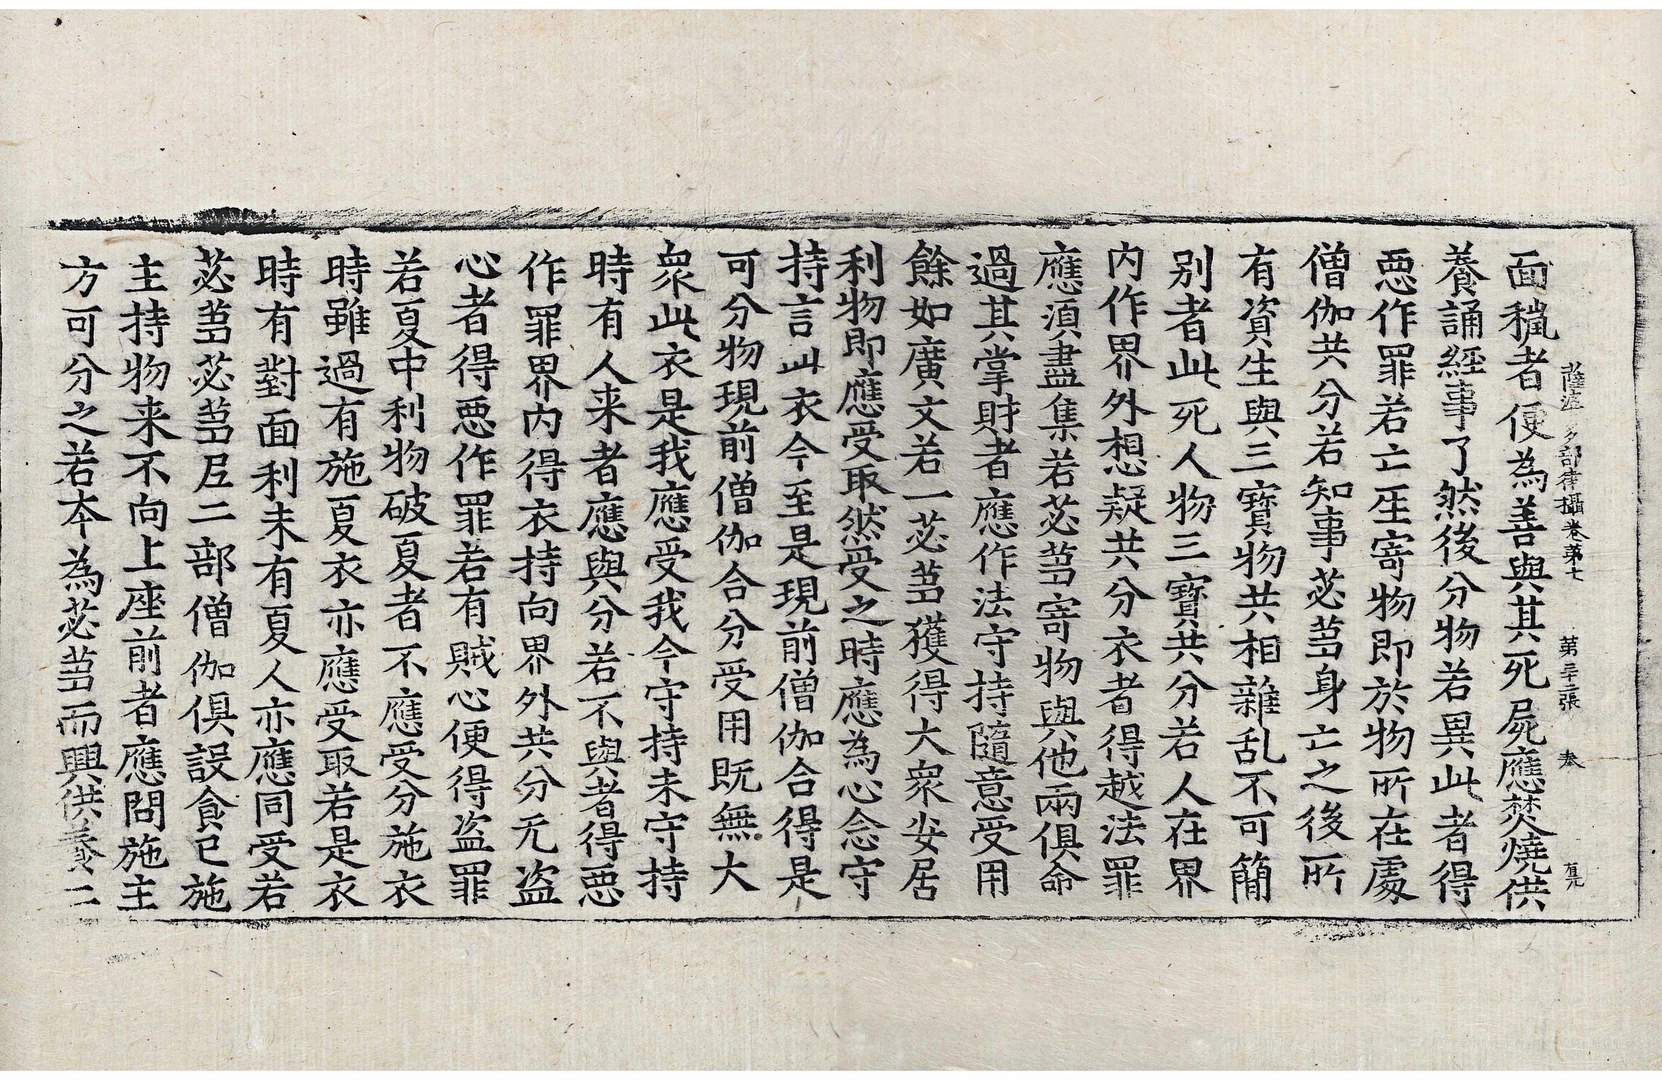 薩波多部律攝卷第七 張
面穢者便為善與其死屍應焚燒供
養誦經事了然後分物若異此者得
惡作罪若亡𤯔寄物即於物所在處
僧伽共分若知事苾芻身亡之後所
有資生與三寶物共相雜乱不可簡
别者此死人物三寶共分若人在界
内作界外想疑共分衣者得越法罪
應須盡集若苾芻寄物與他兩俱命
過其掌財者應作法守持隨意受用
餘如廣文若一苾芻獲得大衆安居
利物即應受取然受之時應為心念守
持言此衣今至是現前僧伽合得是
可分物現前僧伽合分受用既無大
衆此衣是我應受我今守持未守持
時有人来者應與分若不與者得惡
作罪界内得衣持向界外共分无盗
心者得惡作罪若有賊心便得盗罪
若夏中利物破夏者不應受分施衣
時雖過有施夏衣亦應受取若是衣
時有對面利未有夏人亦應同受若
苾芻苾芻尼二部僧伽俱設食已施
主持物来不向上座前者應問施主
方可分之若本為苾芻而興供養二